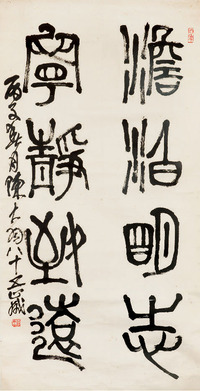 澹泊明志
寧靜致遠
丙子春月陳大羽八十五歲